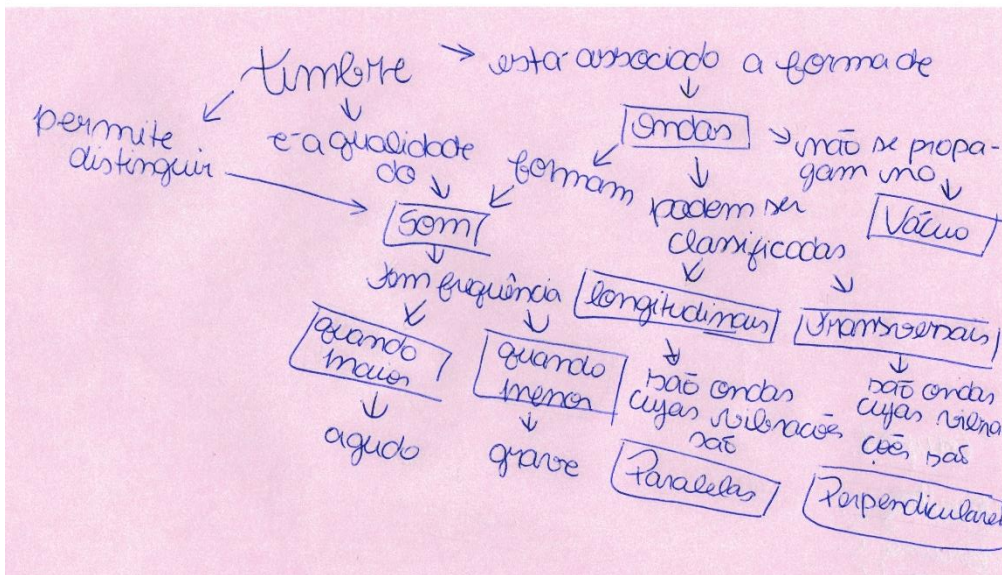 timbre
está associado a forma de
permite
distinguir
é a qualidade
do
Ondas
não se propa-
gam no
Vácuo
formam
Som
podem ser
classificadas
tem frequência
longitudinais
transversais
quando
maior
quando
menor
são ondas
cujas vibrações
são
são ondas
cujas vibra
ções são
agudo
grave
Paralelas
Perpendiculares